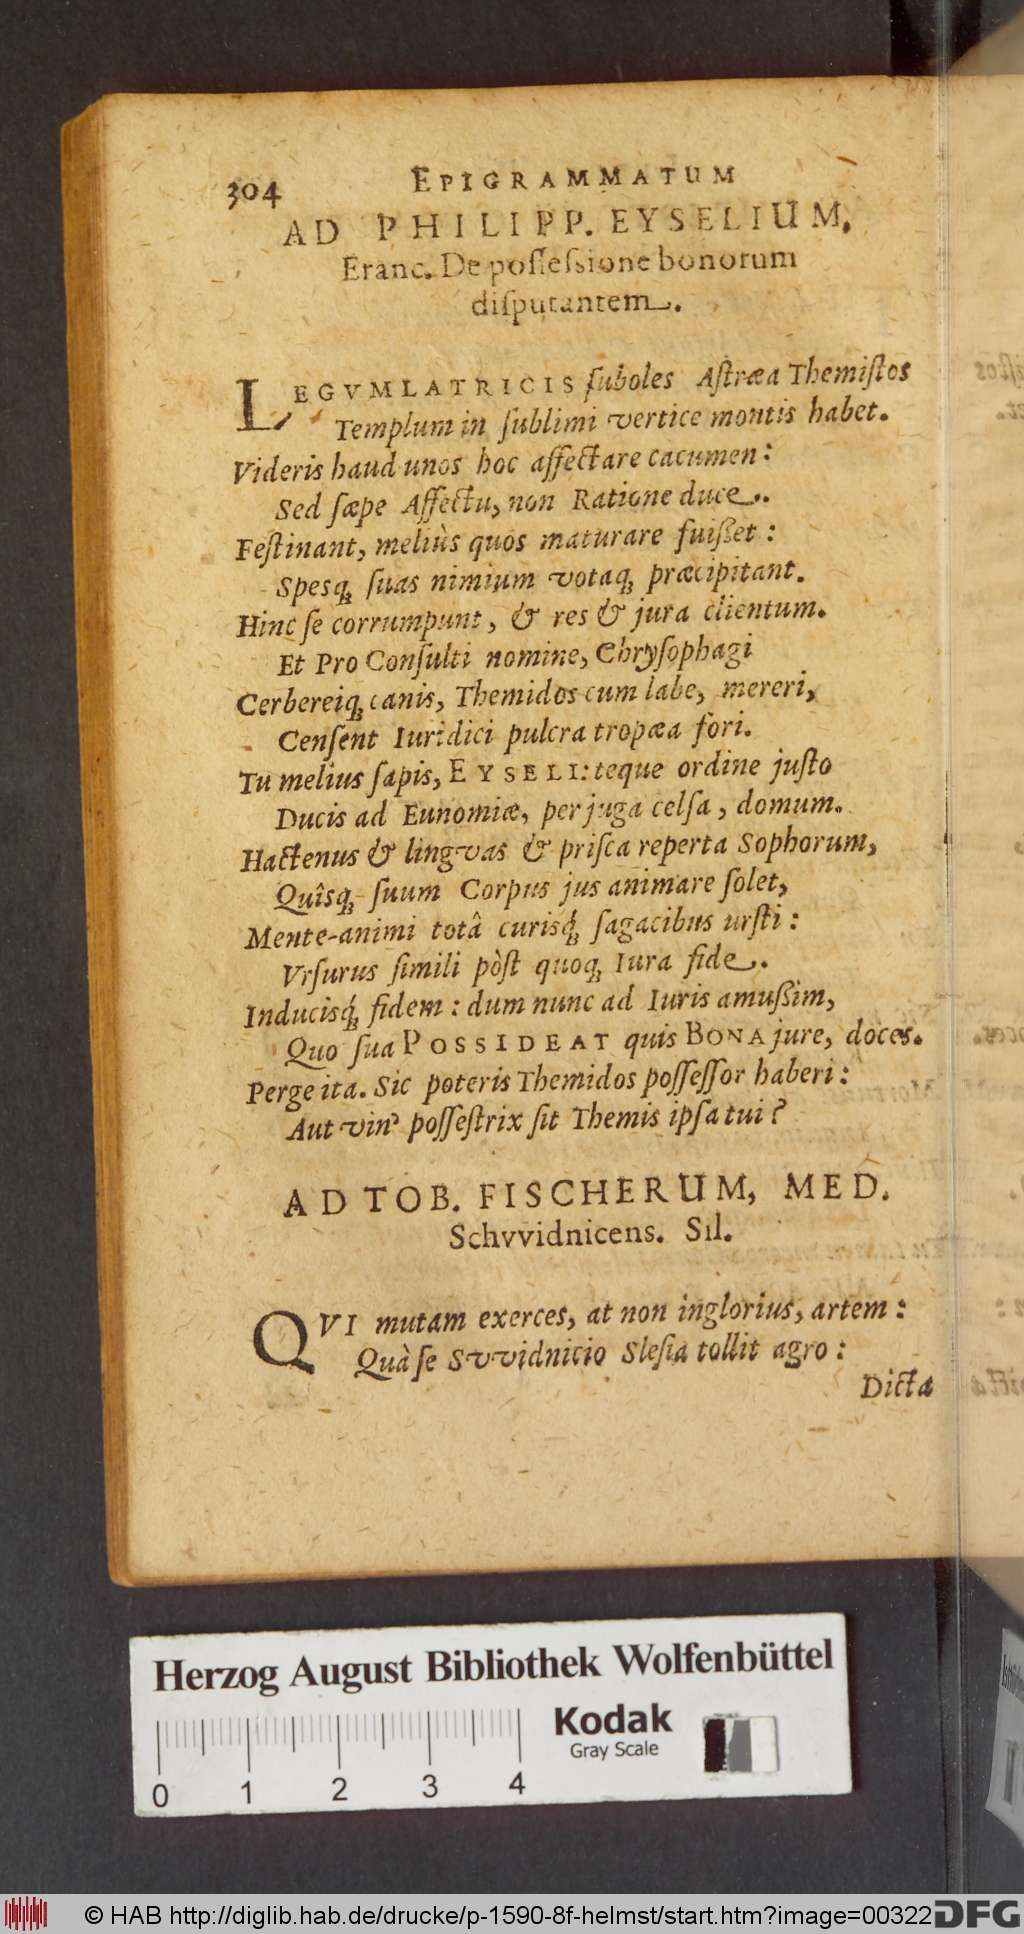 304 EPIGRAMMATUM
AD PHILIPP. EYSELIUM,
Franc. De poſſeſsione bonorum
diſputantem.
LEGVMLATRICIS ſuboles Aſtræa Themiſtos
Templum in ſublimi vertice montis habet.
Videris haud unos hoc affectare cacumen:
Sed ſæpe Affectu, non Ratione duce.
Feſtinant, meliùs quos maturare fuißet:
Spesq́ ſuas nimium votaq́ præcipitant.
Hinc ſe corrumpunt, & res & jura clientum.
Et Pro Conſulti nomine, Chryſophagi
Cerbereiq́ canis, Themidos cum labe, mereri,
Cenſent Iuridici pulcra tropæa fori.
Tu melius ſapis, EYSELI: teque ordine juſto
Ducis ad Eunomiæ, per juga celſa, domum.
Hactenus & lingvas & priſca reperta Sophorum,
Quîsq́ ſuum Corpus jus animare ſolet,
Mente-animi totâ curisq́ ſagacibus urſti:
Vrſurus ſimili pòſt quoq́ Iura fide.
Inducisq́ fidem: dum nunc ad Iuris amußim,
Quo ſua POSSIDEAT quis BONA jure, doces.
Perge ita. Sic poteris Themidos poſſeſſor haberi:
Aut vin' poſſeſtrix ſit Themis ipſa tui?
AD TOB. FISCHERUM, MED.
Schvvidnicens. Sil.
QVI mutam exerces, at non inglorius, artem:
Quà ſe Svvidnicio Sleſia tollit agro:
Dicta
Herzog August Bibliothek Wolfenbüttel
Kodak
Gray Scale
0 1 2 3 4
© HAB http://diglib.hab.de/drucke/p-1590-8f-helmst/start.htm?image=00322 DFG